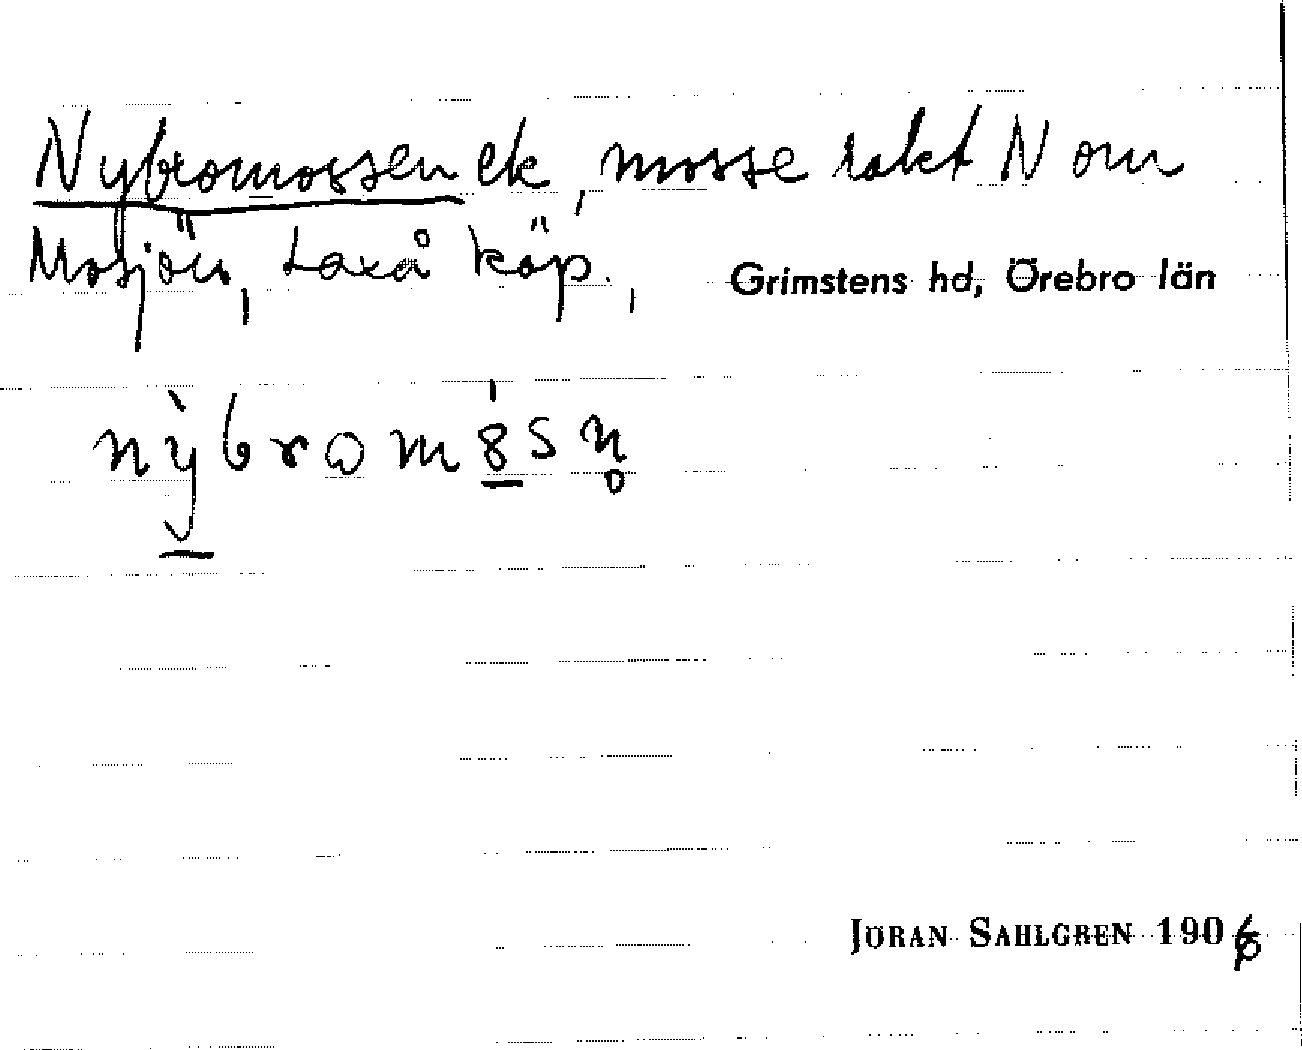 Nybromossen ek, mosse rakt N om
Mosjön, Laxå köp., Grimstens hd, Örebro län
nỳbromȣsn̥
JÖRAN SAHLGREN 1906